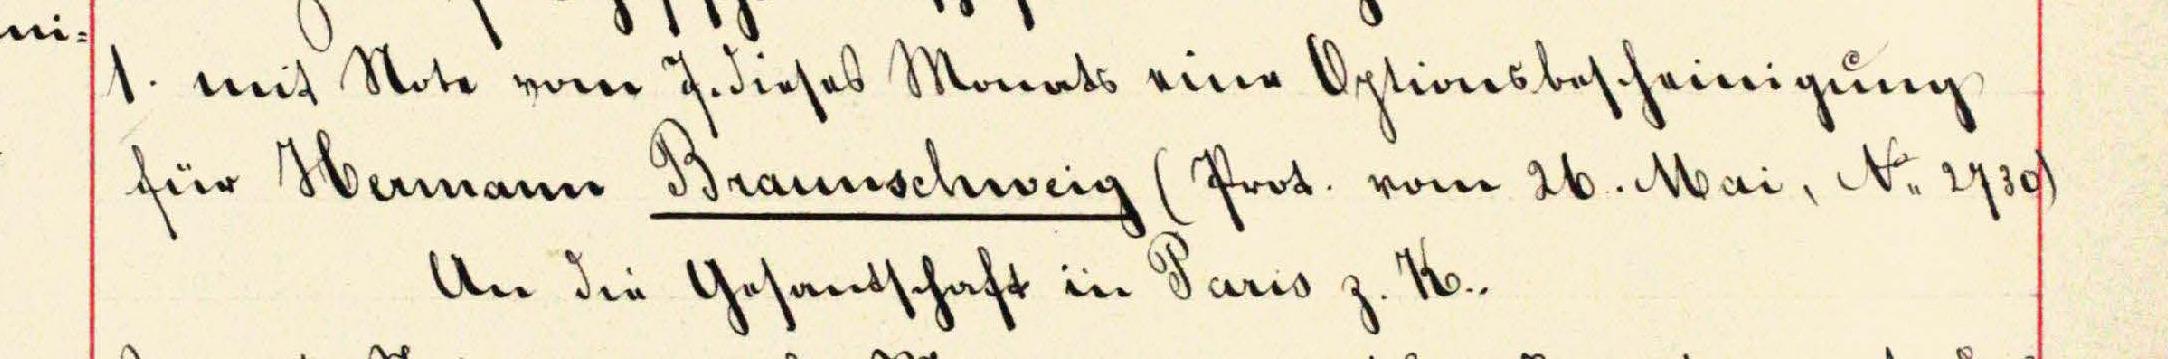 ni=
1. mit Note vom 7. dieses Monats eine Optionsbescheinigung
für Hermann Braunschweig (Prot. vom 26. Mai, No. 2730)
An die Gesantschaft in Paris z. K..